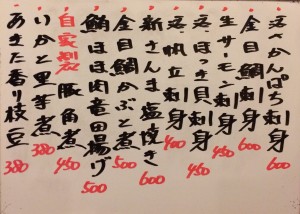 活〆かんぱち刺身 600
金目鯛刺身 600
生サーモン刺身 450
活ほっき貝刺身 450
活帆立刺身 400
新さんま塩焼き 600
金目鯛かぶと煮 500
鮪ほほ肉竜田揚げ 500
自家製豚角煮 450
いかと里芋煮 380
あきた香り枝豆 380